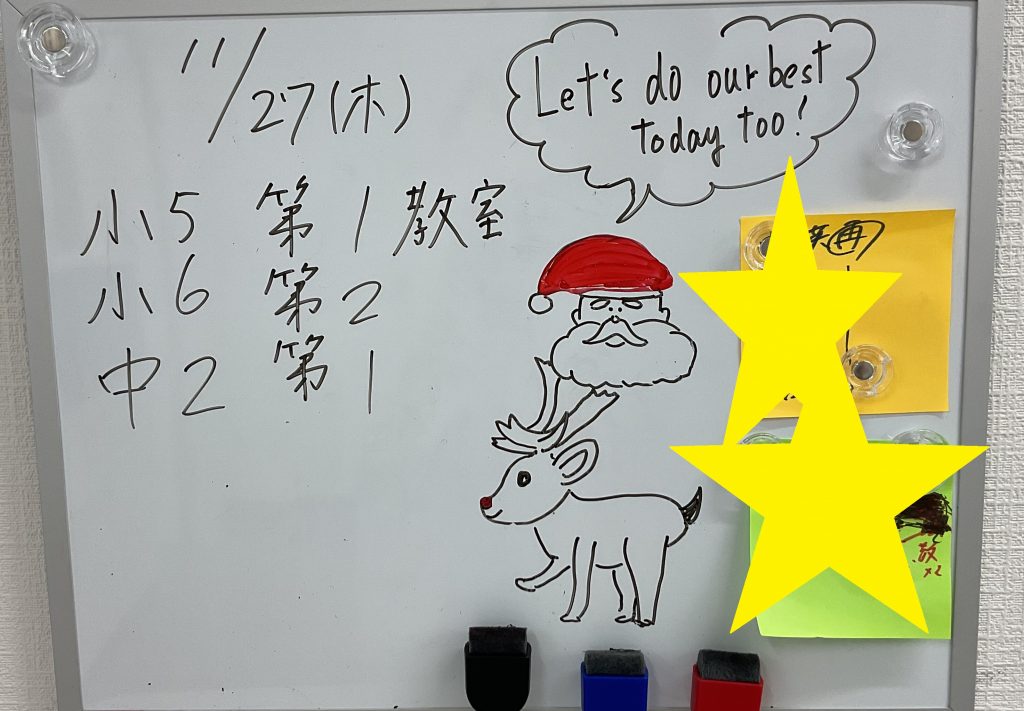 11/27(木)
Let's do our best
today too!
小5 第1教室
小6 第2
中2 第1
再
教
×2